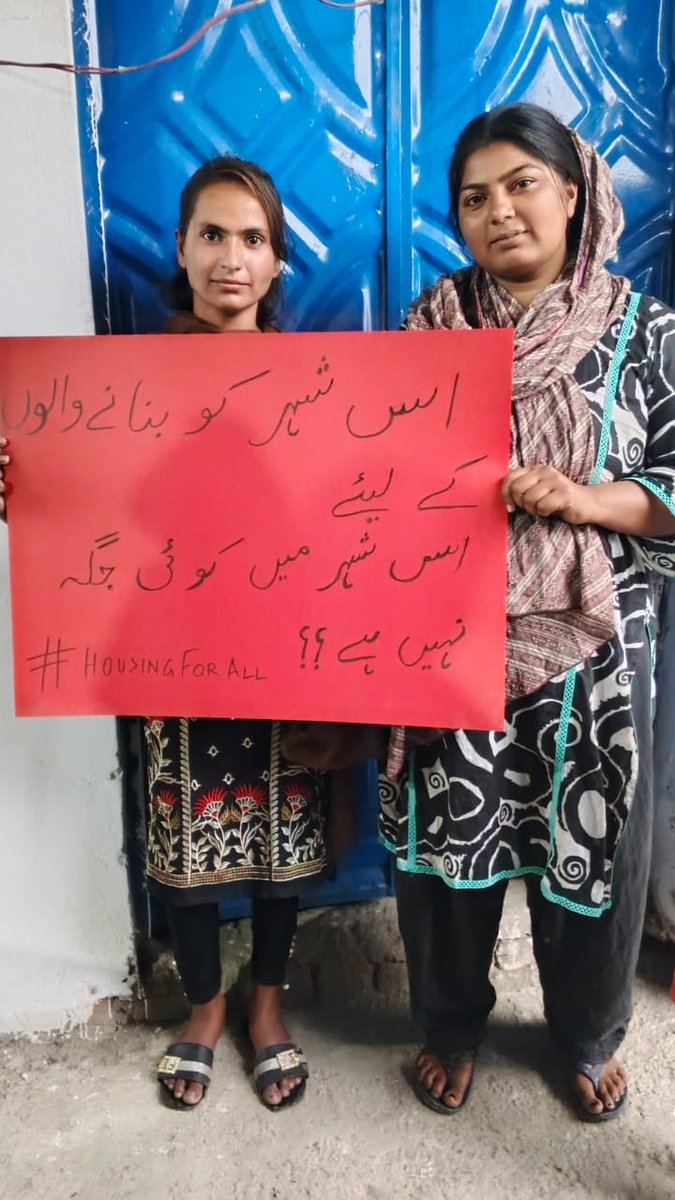 اس شہر کو بنانے والوں
کے لیئے
اس شہر میں کوئی جگہ
نہیں ہے؟؟
#HOUSINGFORALL